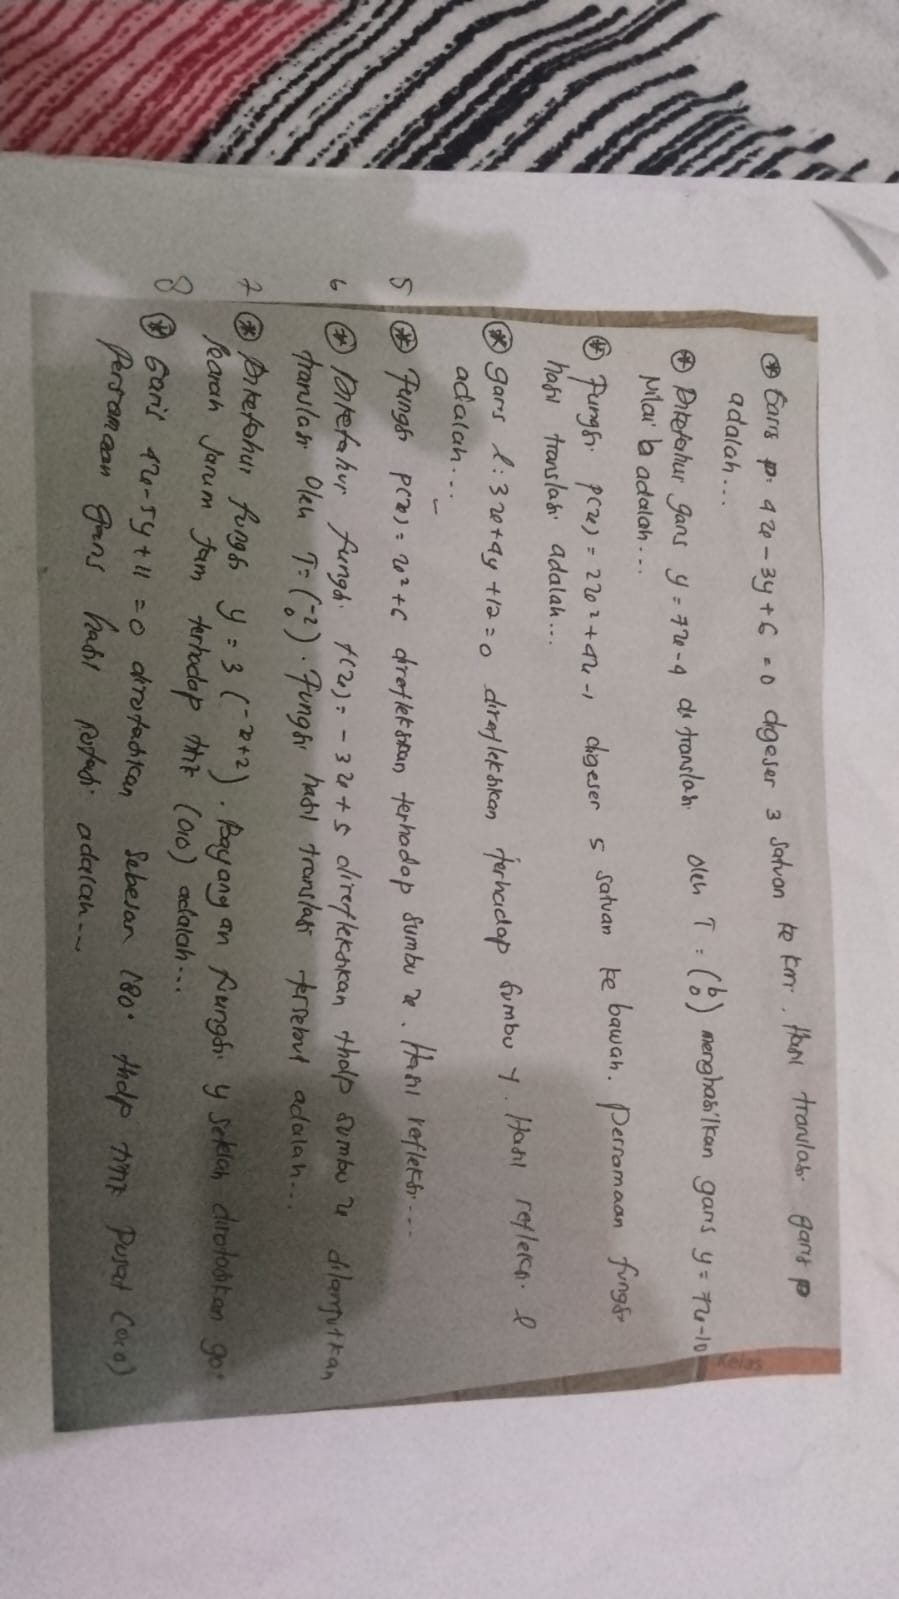 Garis p: 4x - 3y + 6 = 0 digeser 3 satuan ke kiri. Hasil translasi garis p
adalah...
Diketahui garis y = 7x - 4 di translasi oleh T = (b 0) menghasilkan garis y = 7x - 10
Nilai b adalah...
Fungsi p(x) = 2x² + 4x - 1 digeser 5 satuan ke bawah. Persamaan fungsi
hasil translasi adalah...
garis l: 3x + 4y + 12 = 0 direfleksikan terhadap sumbu y. Hasil refleksi l
adalah...
5 Fungsi p(x) = x² + 6 direfleksikan terhadap sumbu x. Hasil refleksi...
6 Diketahui fungsi f(x) = -3x + 5 direfleksikan thdp sumbu x dilanjutkan
translasi oleh T = (-2 0). Fungsi hasil translasi tersebut adalah...
7 Diketahui fungsi y = 3(-x+2). Bayangan fungsi y setelah dirotasikan 90°
searah jarum jam terhadap titik (0,0) adalah...
8 Garis 4x - 5y + 11 = 0 dirotasikan sebesar 180° thdp titik pusat (0,0)
Persamaan garis hasil rotasi adalah...
kelas